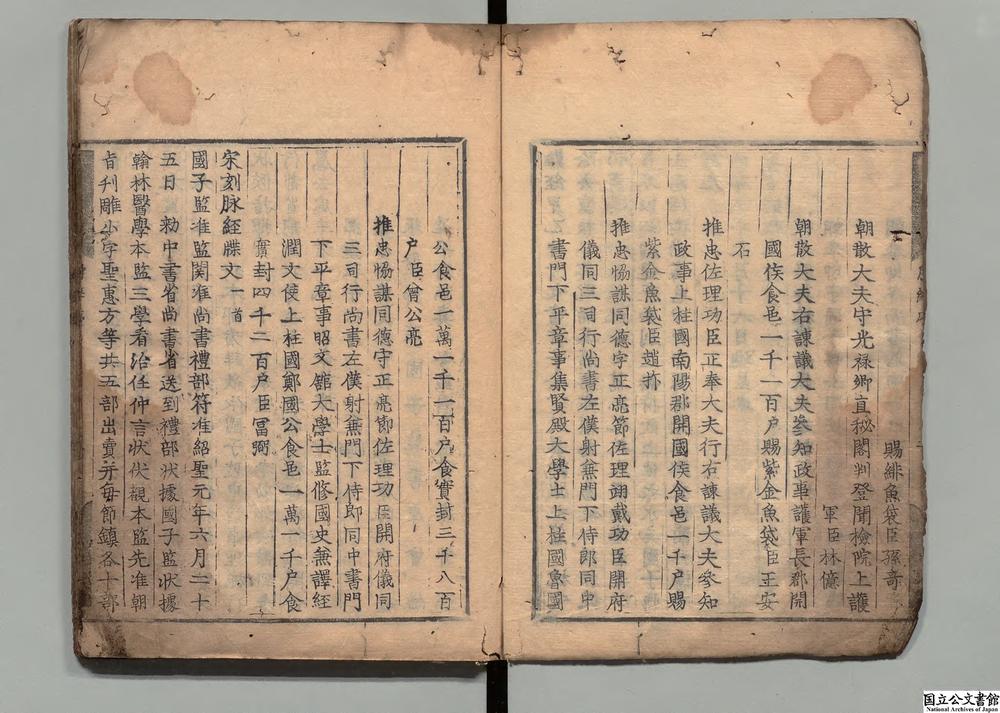 賜緋魚袋臣孫奇
朝散大夫守光祿卿直秘閣判登聞檢院上護
軍臣林億
朝散大夫右諫議大夫參知政事護軍長郡開
國侯食邑一千一百户賜紫金魚袋臣王安
石
推忠佐理功臣正奉大夫行右諫議大夫參知
政事上柱國南陽郡開國侯食邑一千户賜
紫金魚袋臣趙抃
推忠恊謀同德守正亮節佐理翊戴功臣開府
儀同三司行尚書左僕射兼門下侍郎同中
書門下平章事集賢殿大學士上柱國魯國
公食邑一萬一千一百户食實封三千八百
户臣曾公亮
推忠恊謀同德守正亮節佐理功臣開府儀同
三司行尚書左僕射兼門下侍郎同中書門
下平章事昭文館大學士監修國史兼譯經
潤文使上柱國鄭國公食邑一萬一千户食
實封四千二百户臣冨弼
宋刻脉經牒文一首
國子監准監関准尚書禮部符准紹聖元年六月二十
五日 勑中書省尚書省送到禮部狀據國子監狀據
翰林醫學本監三學看治任仲言狀伏觀本監先准朝
旨刊雕小字聖惠方等共五部出賣并每節鎮各十部
国立公文書館
National Archives of Japan